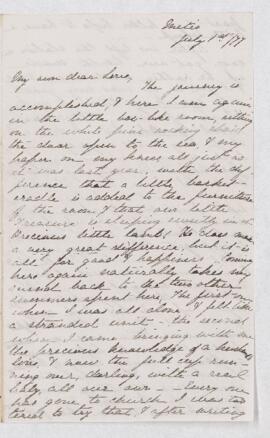 Metis
July 1st /77
My own dear Love,
The journey is
accomplished, & here I am again
in the little box-like room, sitting
on the white pine rocking chair
the door open to the sea, & my
paper on my knees all just as
it was last year, with the dif
ference that a little basket
cradle is added to the furniture
of the room, & that our little
treasure is sleeping sweetly in it.
Precious little lamb! He does make
a very great difference, but it is
all for good & happiness. Coming
here again naturally takes my
mind back to the two other
summers spent here, the first one
when I was all alone & felt like
a stranded unit - the second
when I came bringing with me
the precious knowledge of a husband's
love, & now the full cup run-
ning over, darling, with a real
baby all our own - Every one
has gone to church I was too
tired to try that, & after writing